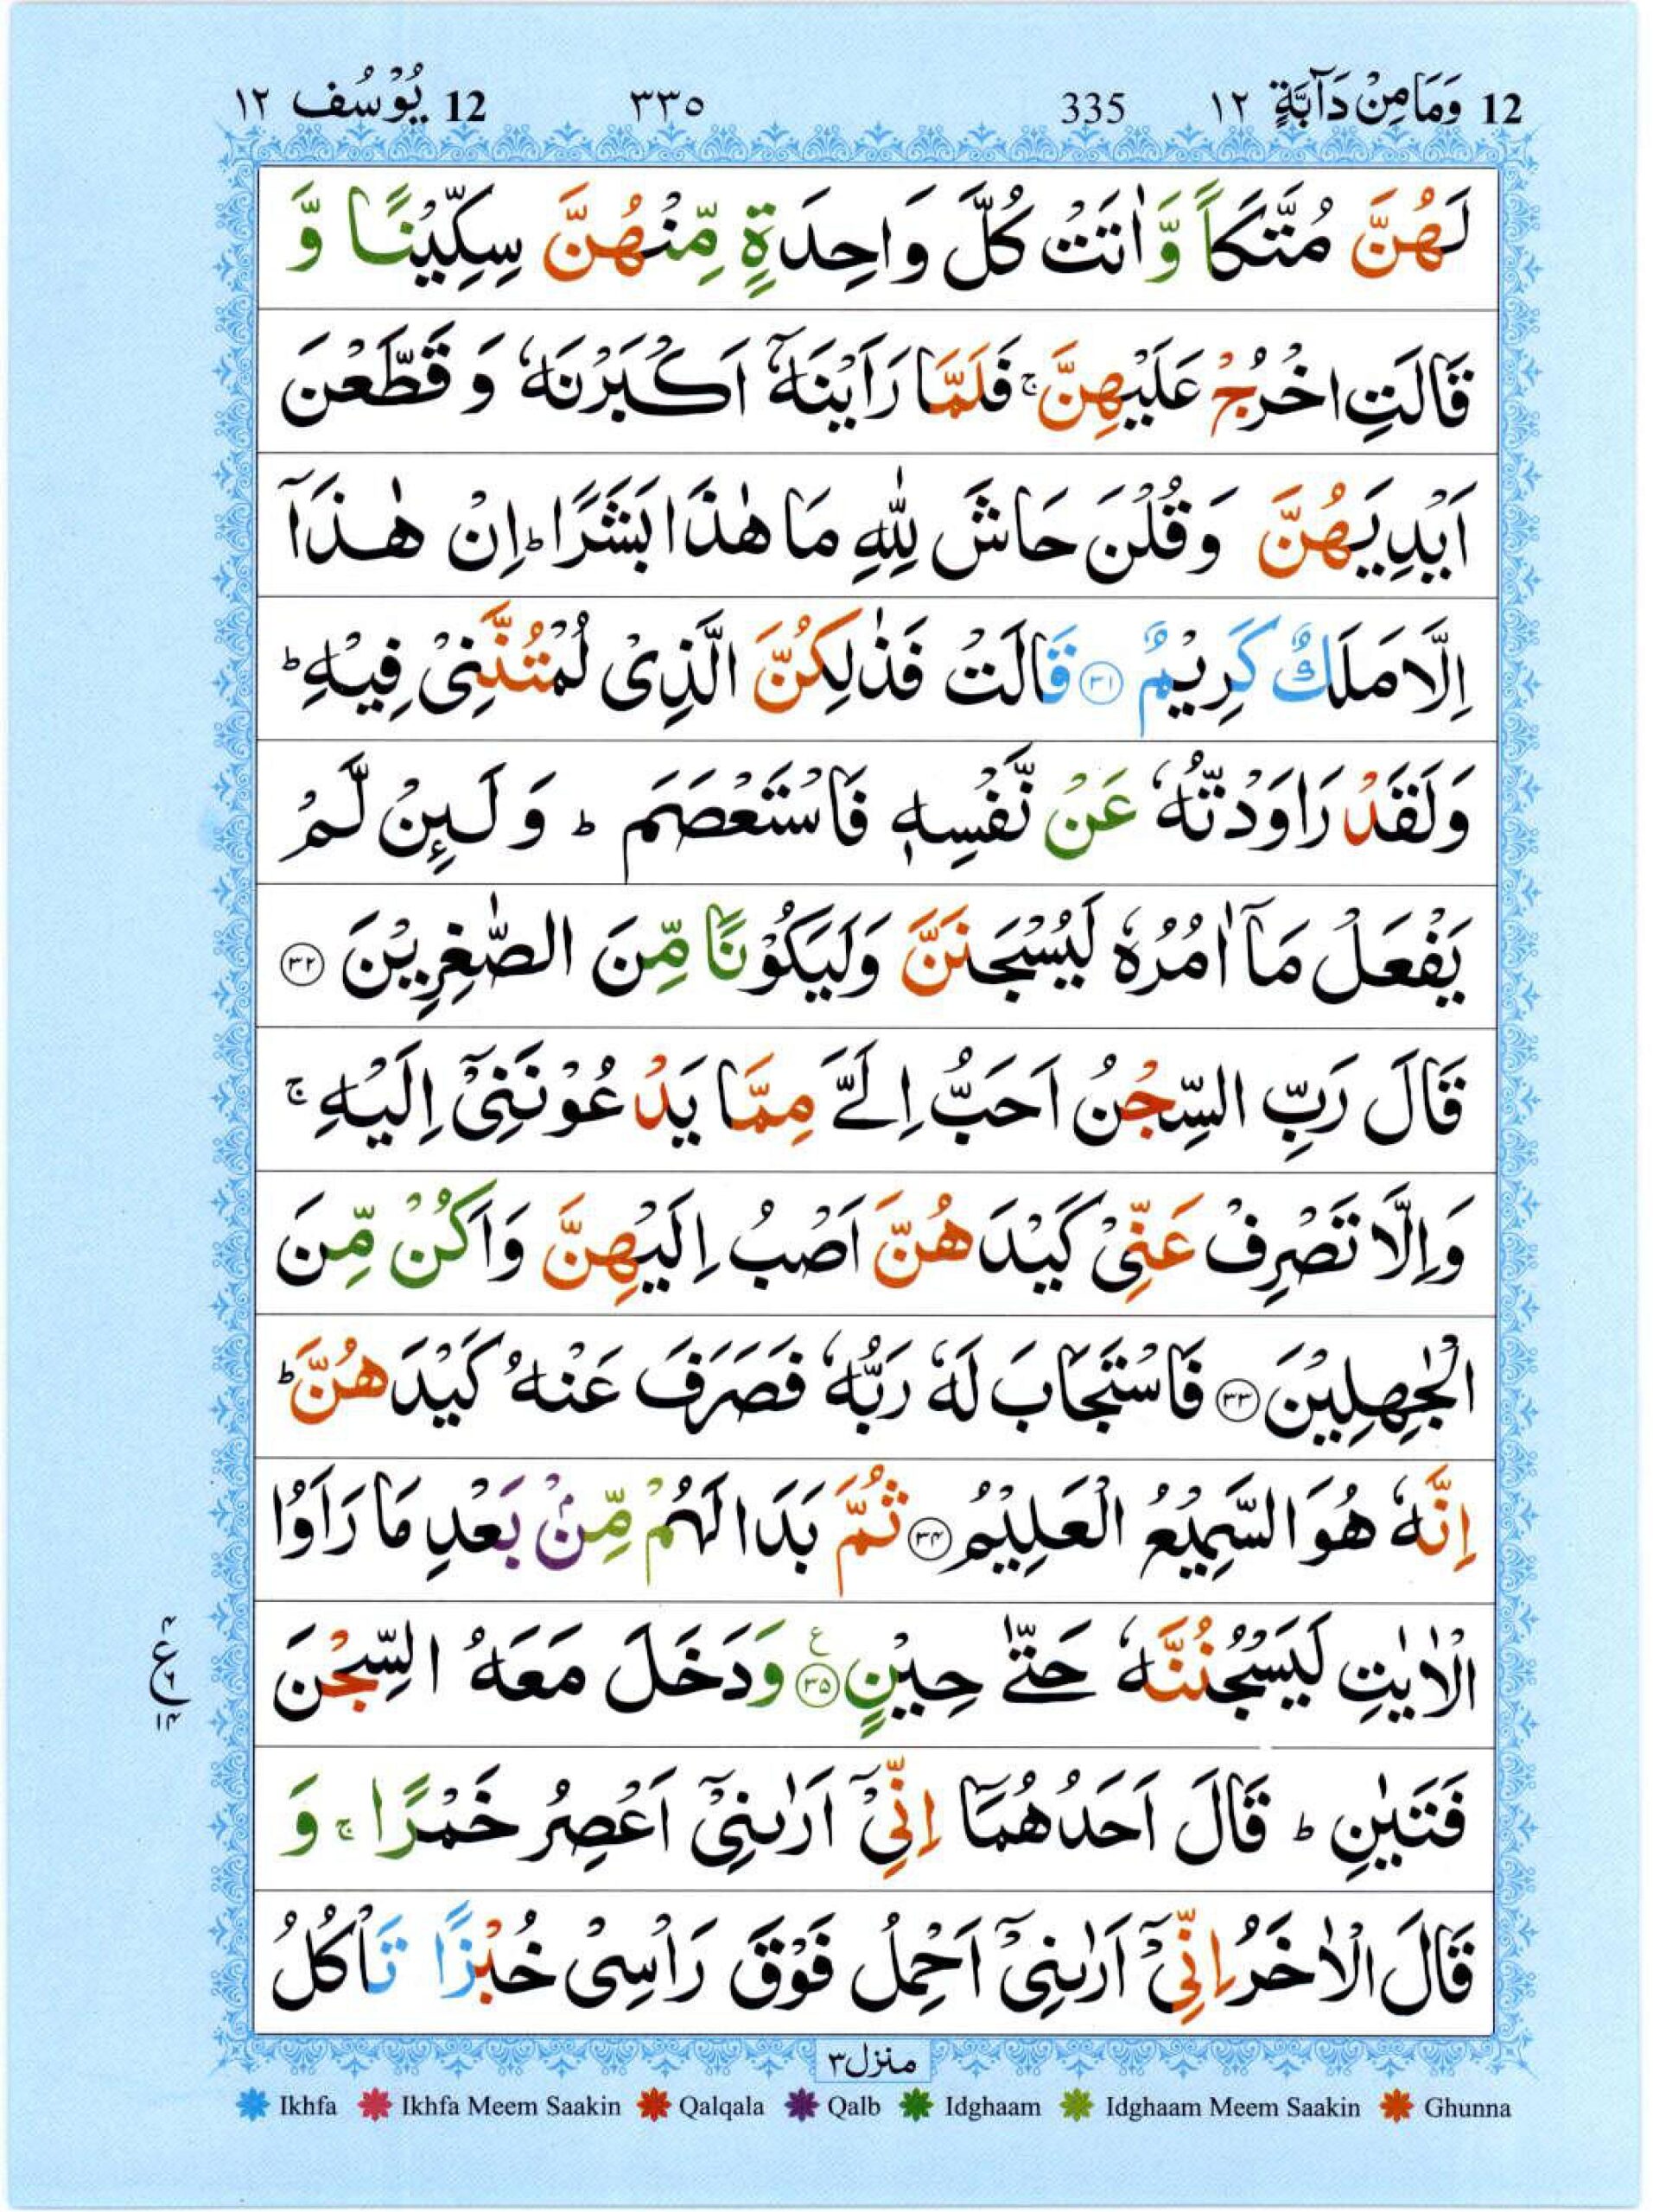 12 وَمَا مِنْ دَآبَّةٍ ١٢ 335 ٣٣٥ 12 يُوْسُف ١٢
لَهُنَّ مُتَّكَاً وَّاٰتَتْ كُلَّ وَاحِدَةٍ مِّنْهُنَّ سِكِّيْنًا وَّ
قَالَتِ اخْرُجْ عَلَيْهِنَّ ۚ فَلَمَّا رَاَيْنَهٗۤ اَكْبَرْنَهٗ وَقَطَّعْنَ
اَيْدِيَهُنَّ وَقُلْنَ حَاشَ لِلّٰهِ مَا هٰذَا بَشَرًا ؕ اِنْ هٰذَاۤ
اِلَّا مَلَكٌ كَرِيْمٌ ﴿٣١﴾ قَالَتْ فَذٰلِكُنَّ الَّذِىْ لُمْتُنَّنِىْ فِيْهِ ؕ
وَلَقَدْ رَاوَدْتُّهٗ عَنْ نَّفْسِهٖ فَاسْتَعْصَمَ ؕ وَلَىِٕنْ لَّمْ
يَفْعَلْ مَاۤ اٰمُرُهٗ لَيُسْجَنَنَّ وَلَيَكُوْنًا مِّنَ الصّٰغِرِيْنَ ﴿٣٢﴾
قَالَ رَبِّ السِّجْنُ اَحَبُّ اِلَىَّ مِمَّا يَدْعُوْنَنِىْۤ اِلَيْهِ ۚ
وَاِلَّا تَصْرِفْ عَنِّىْ كَيْدَهُنَّ اَصْبُ اِلَيْهِنَّ وَاَكُنْ مِّنَ
الْجٰهِلِيْنَ ﴿٣٣﴾ فَاسْتَجَابَ لَهٗ رَبُّهٗ فَصَرَفَ عَنْهُ كَيْدَهُنَّ ؕ
اِنَّهٗ هُوَ السَّمِيْعُ الْعَلِيْمُ ﴿٣٤﴾ ثُمَّ بَدَا لَهُمْ مِّنْۢ بَعْدِ مَا رَاَوُا
الْاٰيٰتِ لَيَسْجُنُنَّهٗ حَتّٰى حِيْنٍ ﴿٣٥﴾ ع وَدَخَلَ مَعَهُ السِّجْنَ
٤ ع ٦ ١٤
فَتَيٰنِ ؕ قَالَ اَحَدُهُمَاۤ اِنِّىْۤ اَرٰىنِىْۤ اَعْصِرُ خَمْرًا ۚ وَ
قَالَ الْاٰخَرُ اِنِّىْۤ اَرٰىنِىْۤ اَحْمِلُ فَوْقَ رَاْسِىْ خُبْزًا تَاْكُلُ
منزل ٣
Ikhfa Ikhfa Meem Saakin Qalqala Qalb Idghaam Idghaam Meem Saakin Ghunna